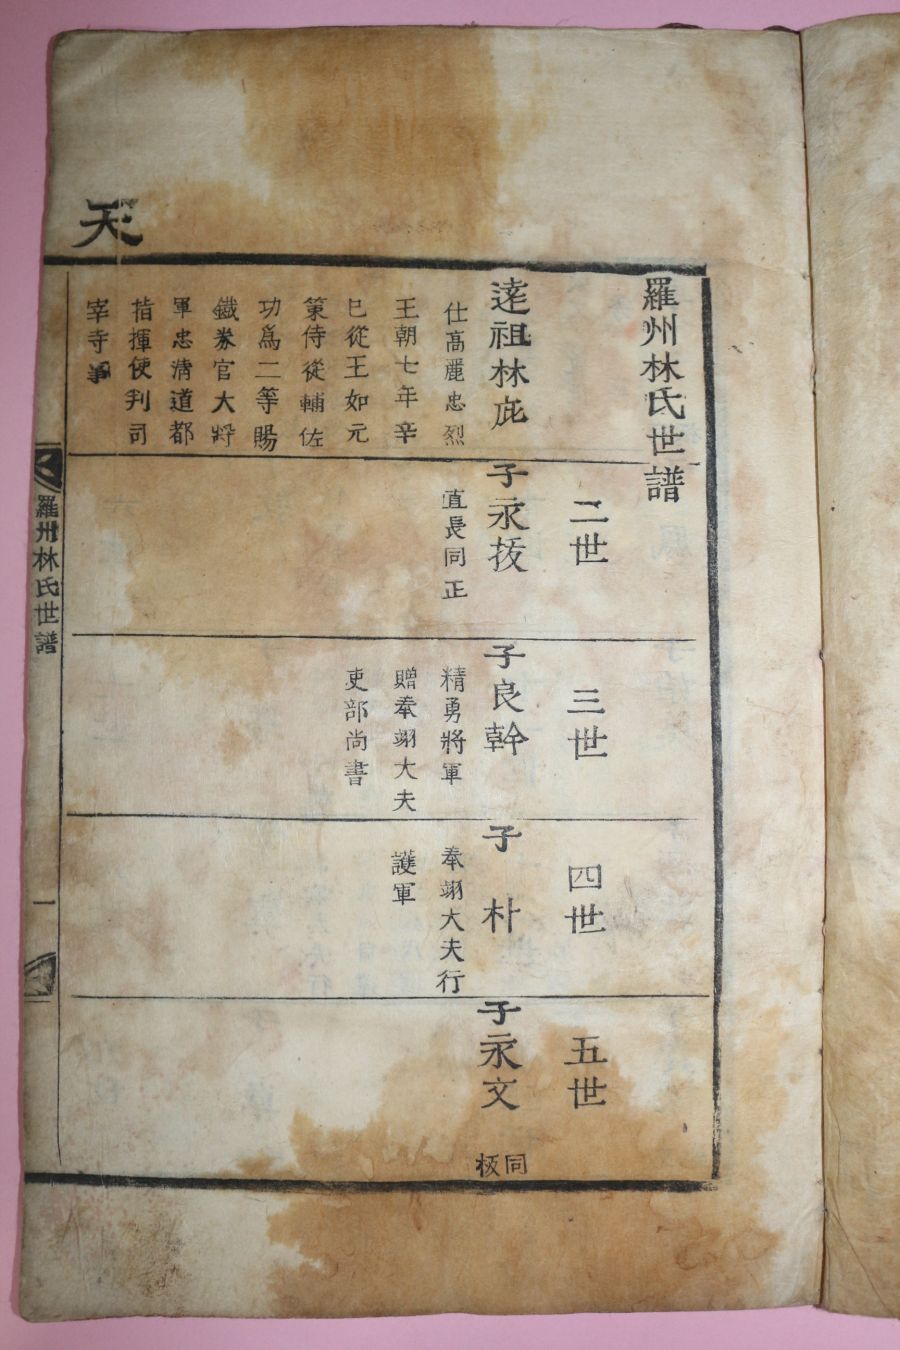 天
羅州林氏世譜
逺祖林庇
仕高麗忠烈
王朝七年辛
巳從王如元
策侍從輔佐
功爲二等賜
鐵券官大将
軍忠清道都
指揮使判司
宰寺事
二世
子永抜
直長同正
三世
子良幹
精勇將軍
贈奉翊大夫
吏部尚書
四世
子朴
奉翊大夫行
護軍
五世
子永文
同板
羅州林氏世譜
一